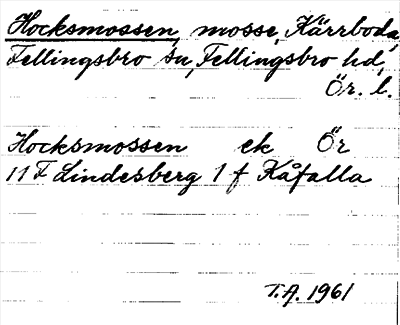 Hocksmossen, mosse, Kärrboda,
Fellingsbro sn, Fellingsbro hd,
Ör. l.
Hocksmossen ek Ör
11 F Lindesberg 1 f Kåfalla
T.A. 1961